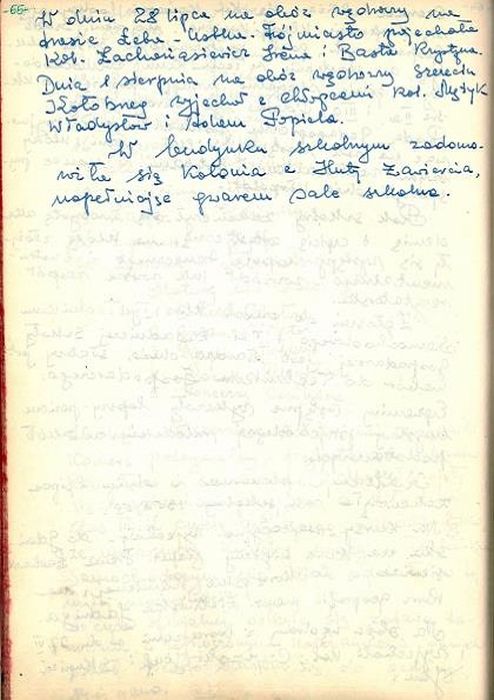 -66-
W dniu 28 lipca na obóz wędrowny na
trasie Łeba - Ustka - Trójmiasto pojechała
kol. Lachowiasiewicz Irena i Basta Krystyna.
Dnia 1 sierpnia na obóz wędrowny Szczecin
Kołobrzeg wyjechał z chłopcami kol. Mężyk
Władysław i Adam Popiela.
W budynku szkolnym zadomo-
wiła się Kolonia z Huty Zawiercia,
napełniając gwarem sale szkolne.